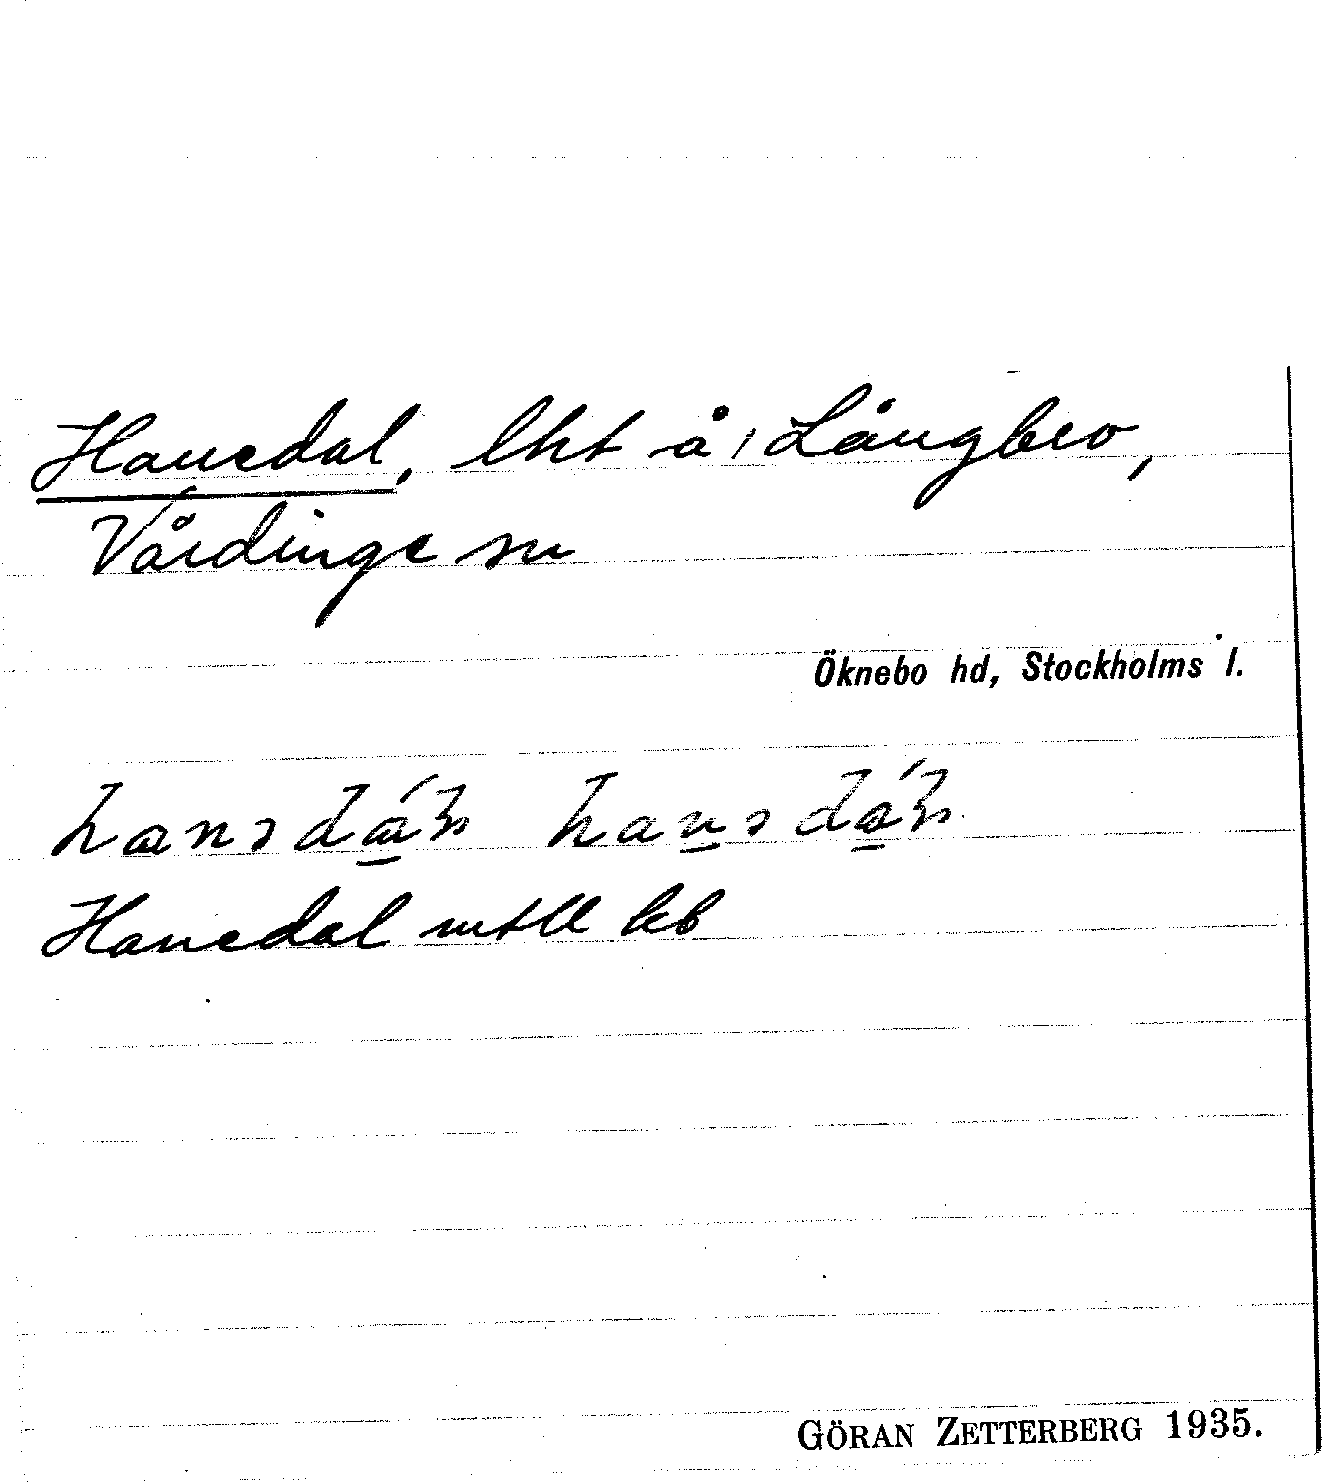 Hanedal, lht å Långbro,
Vårdinge sn
Öknebo hd, Stockholms l.
Hanedal mtll kb
GÖRAN ZETTERBERG 1935.